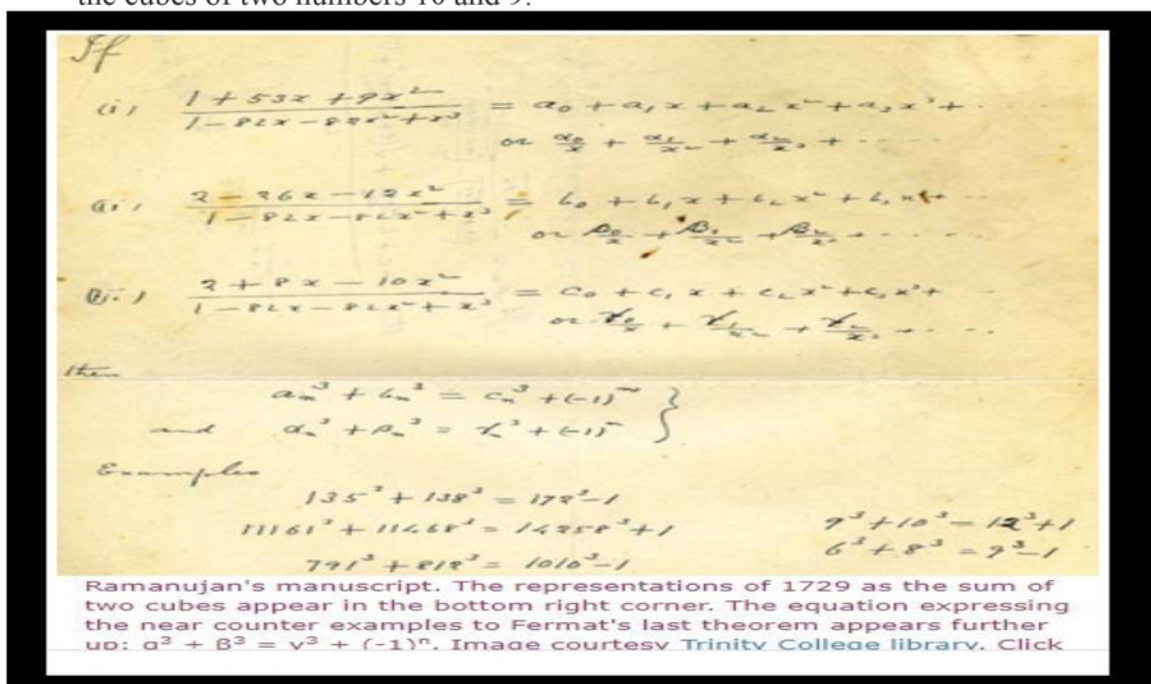 the cubes of two numbers 10 and 9.
If
(i) 1 + 53x + 9x² / 1 − 82x − 82x² + x³ = a₀ + a₁x + a₂x² + a₃x³ + ....
or α₀/x + α₁/x² + α₂/x³ + .....
(ii) 2 − 26x − 12x² / 1 − 82x − 82x² + x³ = b₀ + b₁x + b₂x² + b₃x³ + ...
or β₀/x + β₁/x² + β₂/x³ + .....
(iii) 2 + 8x − 10x² / 1 − 82x − 82x² + x³ = c₀ + c₁x + c₂x² + c₃x³ + ..
or γ₀/x + γ₁/x² + γ₂/x³ + ....
then
aₙ³ + bₙ³ = cₙ³ + (−1)ⁿ }
and αₙ³ + βₙ³ = γₙ³ + (−1)ⁿ
Examples
135³ + 138³ = 172³ − 1
11161³ + 11468³ = 14258³ + 1
791³ + 812³ = 1010³ − 1
9³ + 10³ = 12³ + 1
6³ + 8³ = 9³ − 1
Ramanujan's manuscript. The representations of 1729 as the sum of
two cubes appear in the bottom right corner. The equation expressing
the near counter examples to Fermat's last theorem appears further
up: α³ + β³ = γ³ + (-1)ⁿ. Image courtesy Trinity College library. Click